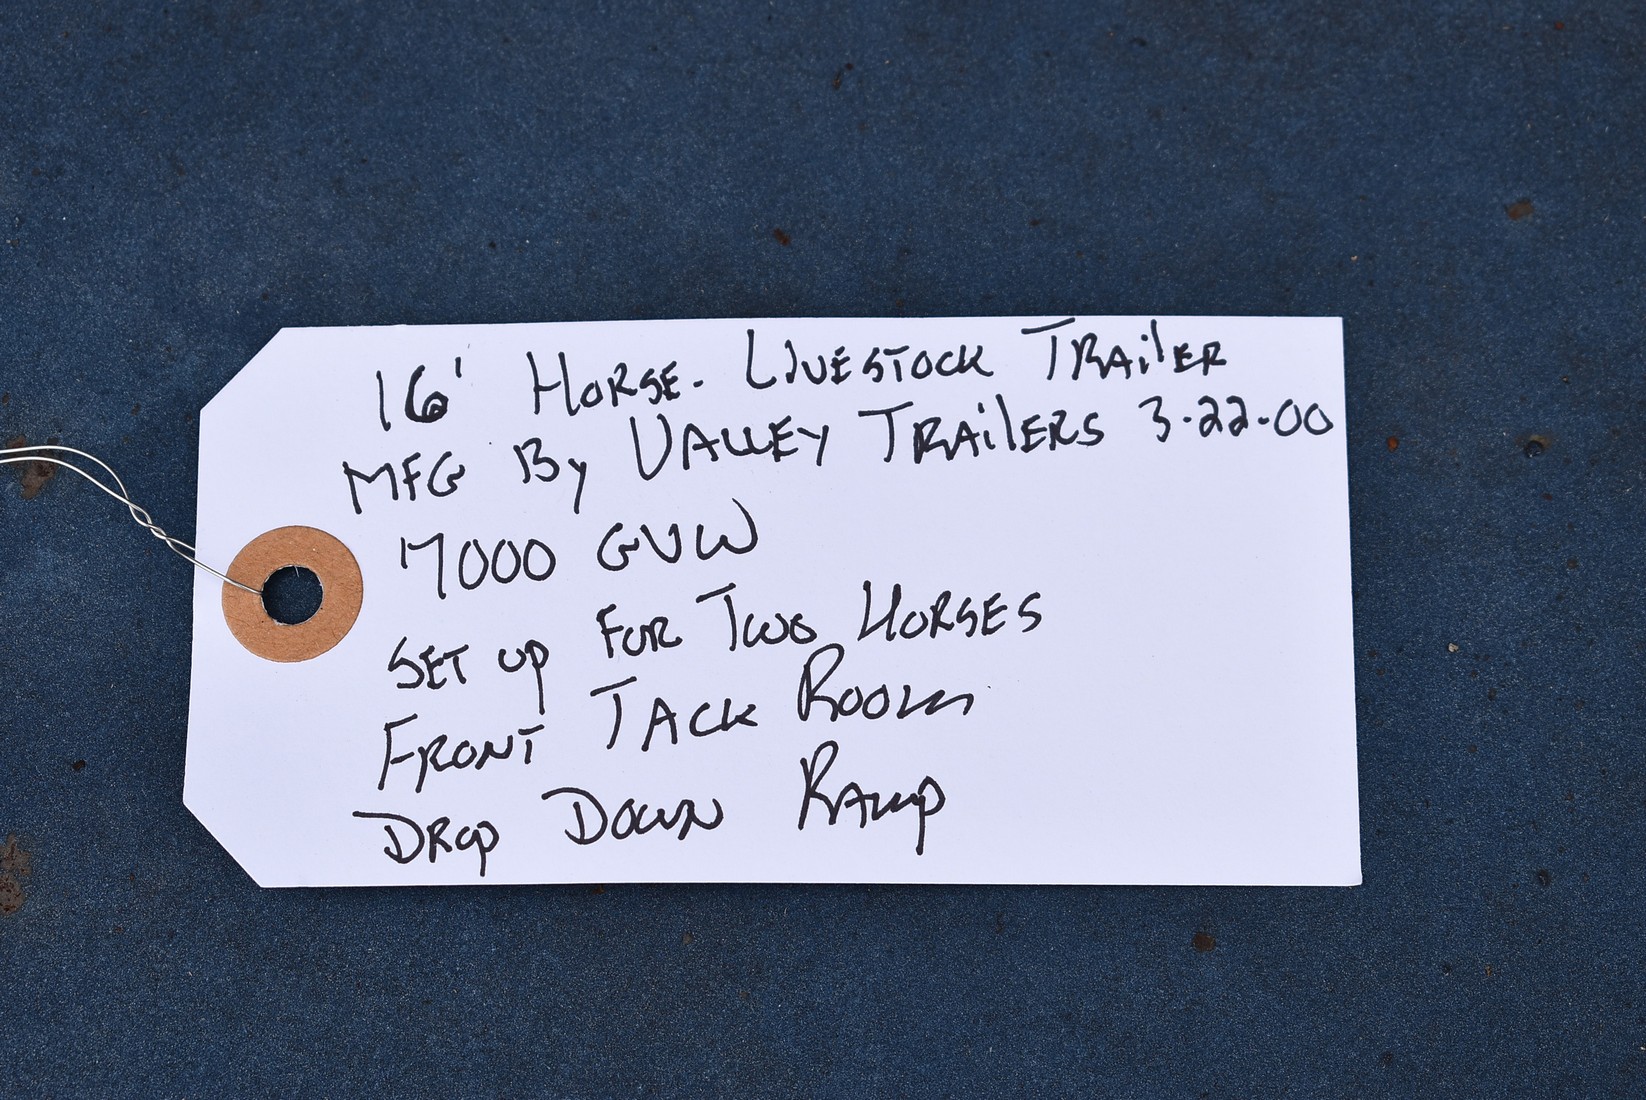 16' Horse. Livestock Trailer
MFG By Valley Trailers 3.22.00
7000 GVW
Set up For Two Horses
Front Tack Room
Drop Down Ramp